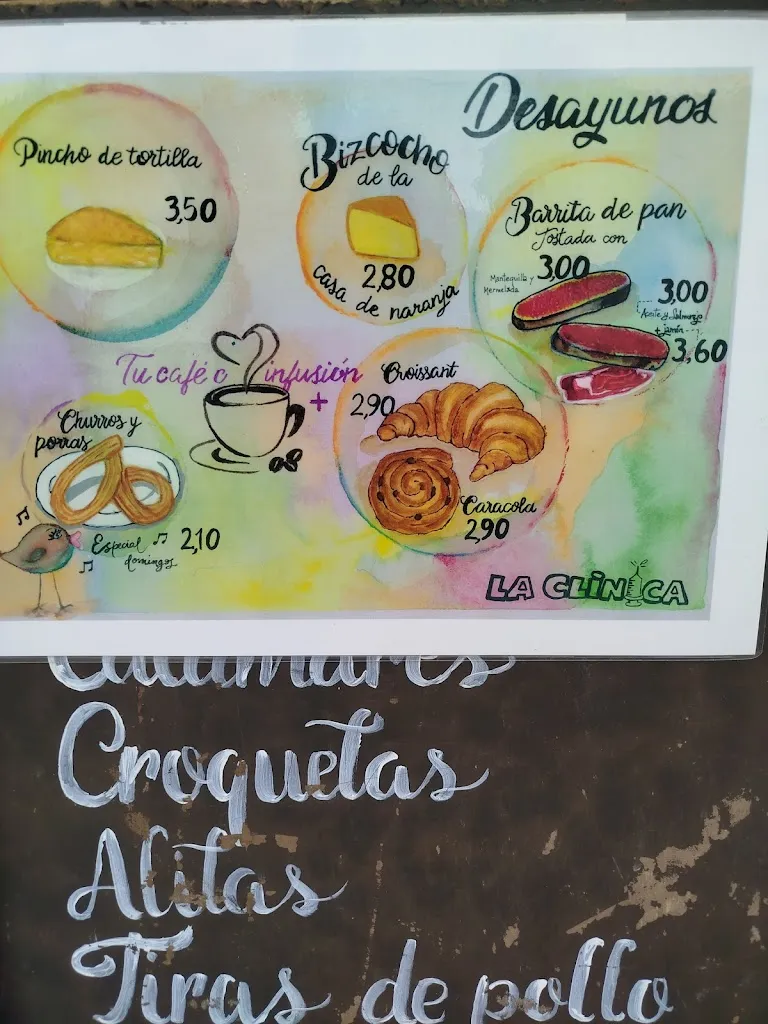 Desayunos
Pincho de tortilla
3,50
Bizcocho
de la
2,80
casa de naranja
Barrita de pan
Tostada con
Mantequilla y
Mermelada
3,00
3,00
Aceite y Salmorejo
+ jamón
3,60
Tu café o infusión
+
Croissant
2,90
Caracola
2,90
Churros y
porras
Especial
domingos
2,10
LA CLINICA
Calamares
Croquetas
Alitas
Tiras de pollo